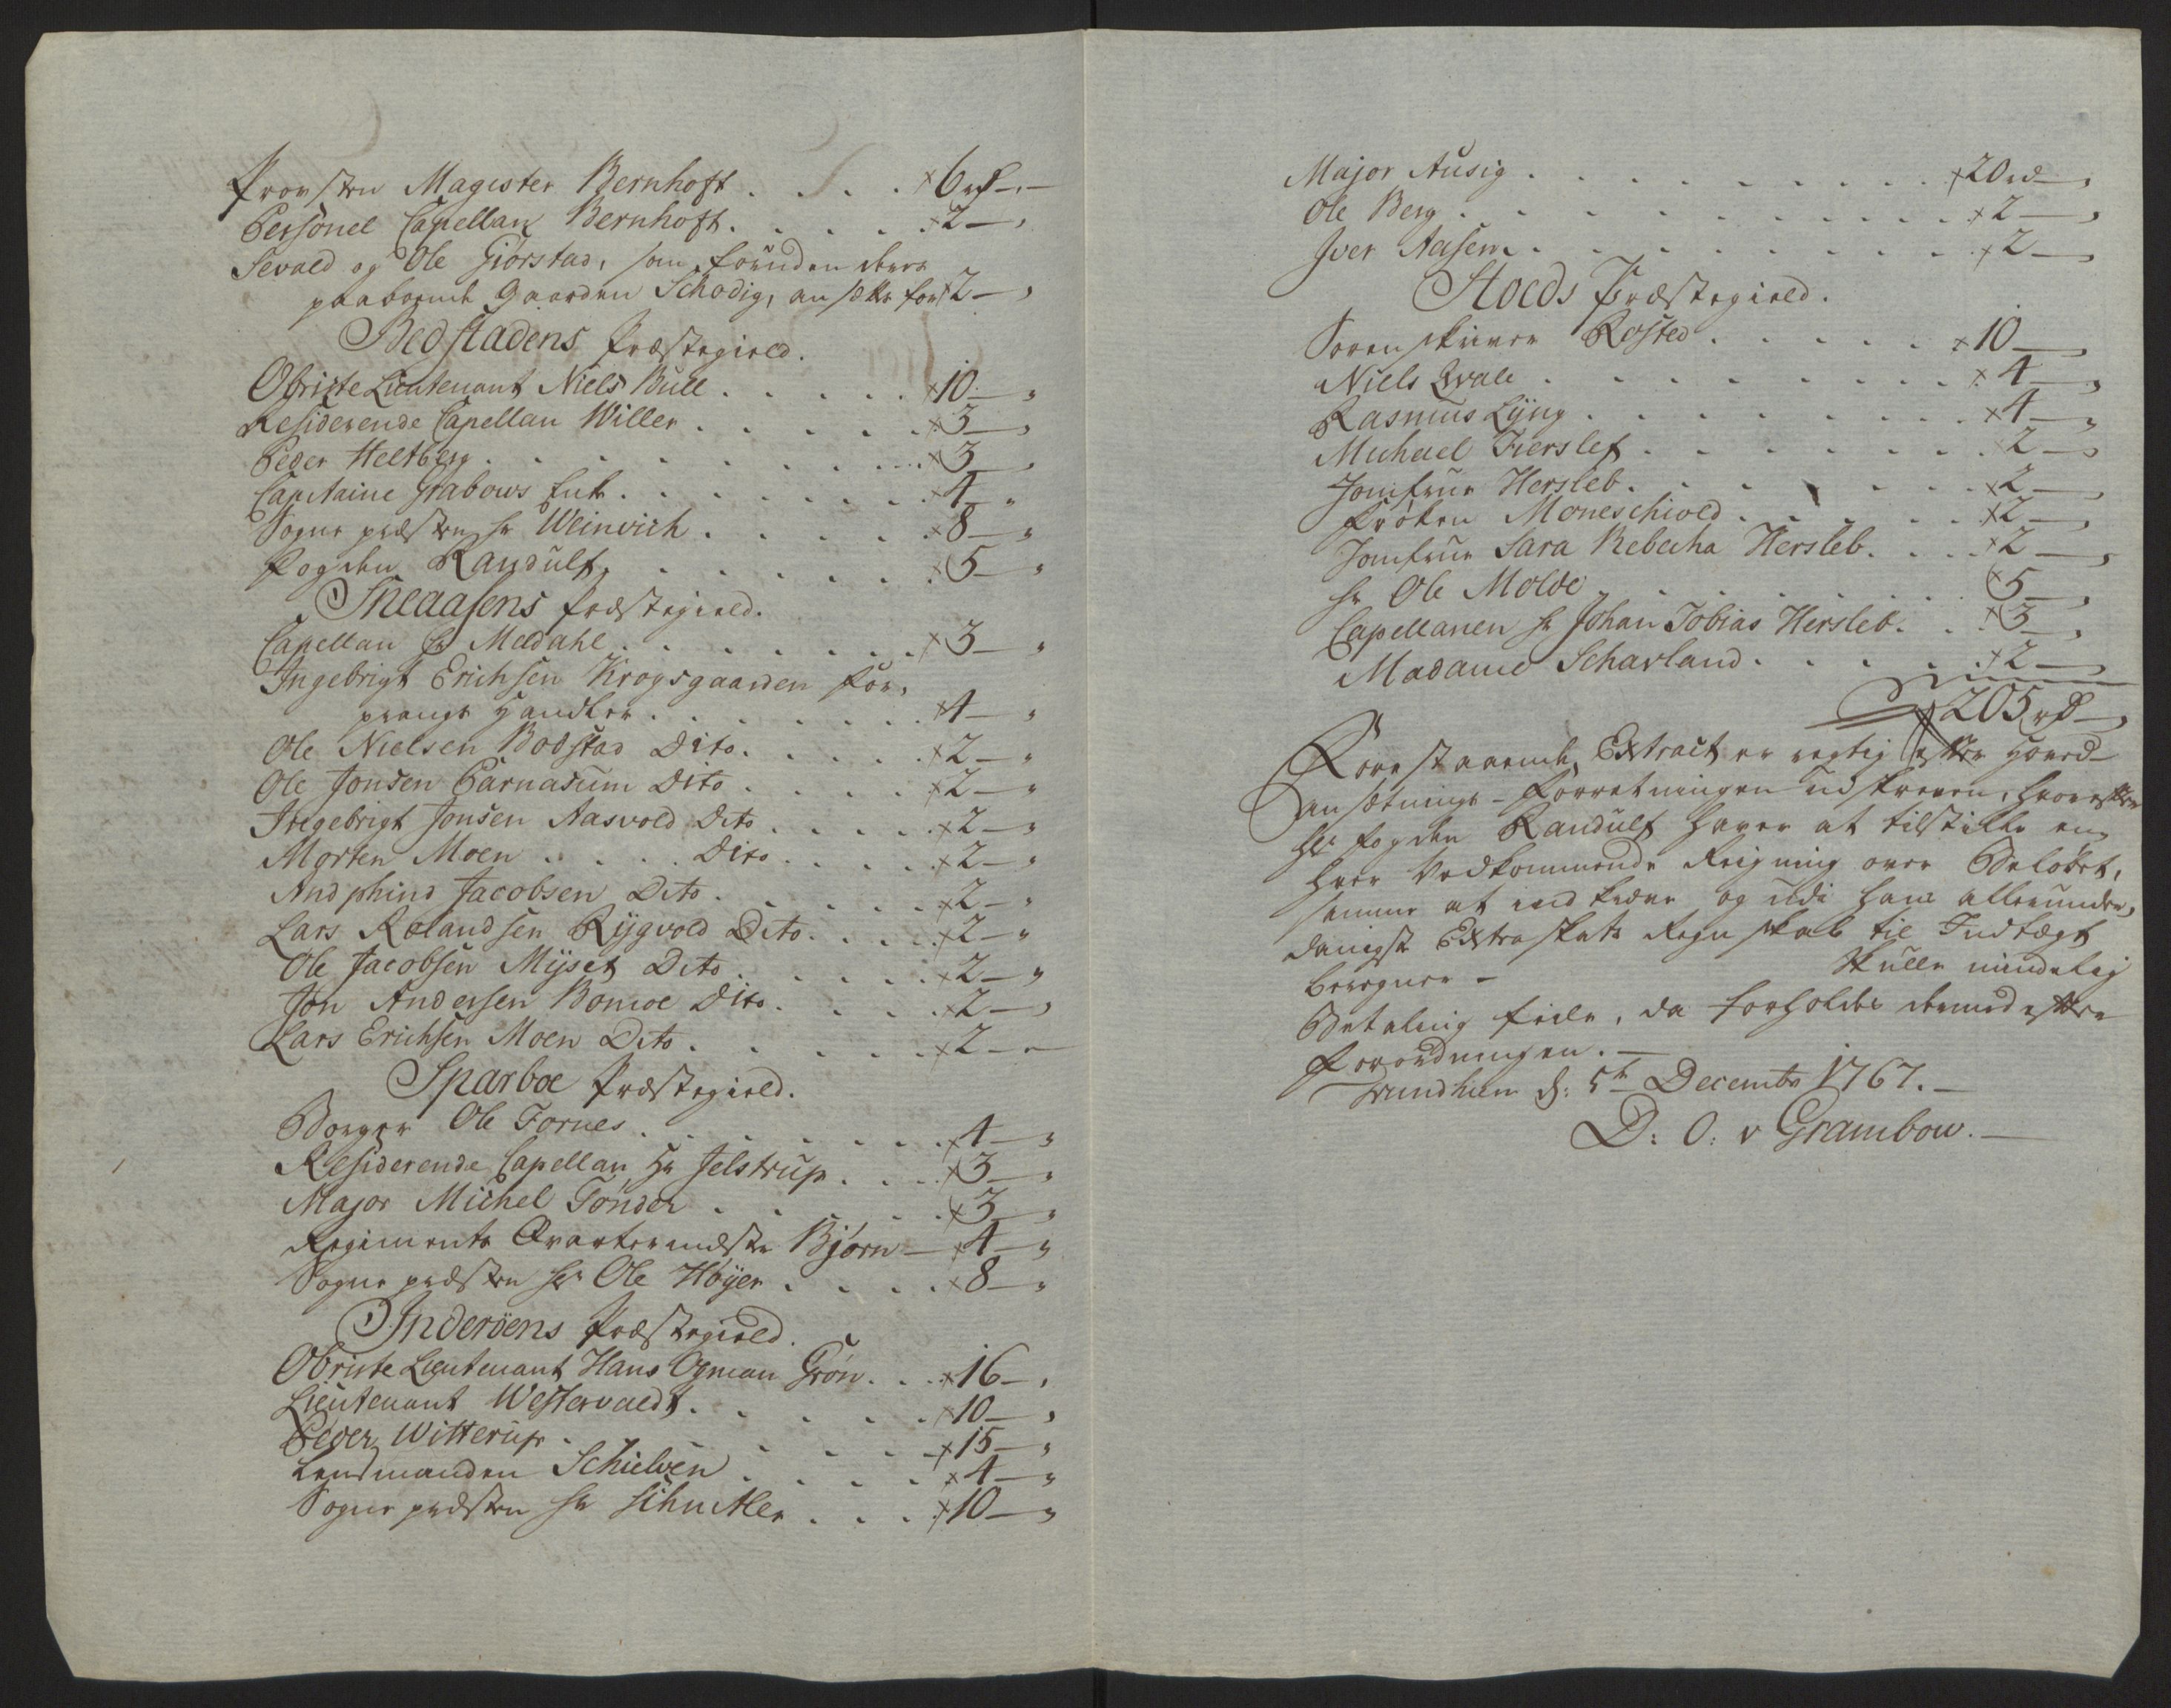 Provsten Magister Bernhoft . . . . 6 rd — „
Personel Capellan Bernhoft . . . . 2 — „
Sevald og Ole Giørstad, som foruden deres
paaboende Gaarden Schødig, ansætte for 2 — „
Bedstadens Præstegield.
Obriste Lieutenant Niels Bull . . . . 10 — „
Residerende Capellan Willer . . . . 3 — „
Peder Heltberg . . . . 3 — „
Capitaine Grabows Enke . . . . 4 — „
Sognepræsten Hr Weinvich . . . . 8 — „
Fogden Randulf . . . . 5 — „
Sneaasens Præstegield.
Capellan Hr Meldahl . . . . 3 — „
Ingebrigt Erichsen Krogsgaarden for
prangs Handler . . . . 4 — „
Ole Nielsen Bodstad Dito . . . . 2 — „
Ole Jonsen Parnasum Dito . . . . 2 — „
Ingebrigt Jonsen Aasvold Dito . . . . 2 — „
Morten Moen . . . . Dito . . . . 2 — „
Andphind Jacobsen Dito . . . . 2 — „
Lars Rolandsen Rygvold Dito . . . . 2 — „
Ole Jacobsen Myset Dito . . . . 2 — „
Jon Andersen Bomoe Dito . . . . 2 — „
Lars Erichsen Moen Dito . . . . 2 — „
Sparboe Præstegield.
Borger Ole Fornes . . . . 4 — „
Residerende Capellan Hr Jelstrup . . . . 3 — „
Major Michel Tønder . . . . 3 — „
Regiments Qvarteermester Bjørn — 4 — „
Sognepræsten Hr Ole Høyer . . . . 8 — „
Inderøens Præstegield.
Obriste Lieutenant Hans Ogman Grøn . . . 16 — „
Lieutenant Westervaldt . . . . 10 — „
Peder Witterup . . . . 15 — „
Lensmanden Schielven . . . . 4 — „
Sognepræsten Hr Schnitler . . . . 10 — „
Major Ausig . . . . 20 rd — „
Ole Berg . . . . 2 — „
Iver Aasem . . . . 2 — „
Stoeds Præstegield.
Sorenskriver Rosted . . . . 10 — „
Niels Qvale . . . . 4 — „
Rasmus Lyng . . . . 4 — „
Michael Fierslef . . . . 2 — „
Jomfrue Hersleb . . . . 2 — „
Frøken Moneschiold . . . . 2 — „
Jomfrue Sara Rebecha Hersleb . . . . 2 — „
Hr Ole Molde . . . . 5 — „
Capellanen Hr Johan Tobias Hersleb . . . 3 — „
Madame Schavland . . . . 2 — „
205 rd — „
Forestaaende Extract er rigtig efter Hoved-
ansætnings-Forretningen udskreven, hvorefter
Hr Fogden Randulf haver at tilstille en
hver Vedkommende Reigning over Beløbet,
samme at indkræve og udi hans allerunder,
danigst Extraskats Regnskab til Indtægt
beregner — Skulle mindelig
Betaling feile, da forholdes dermed efter
Forordningen. —
Trundhiem d: 5te Decembr 1767. —
D: O: v Grambow. —